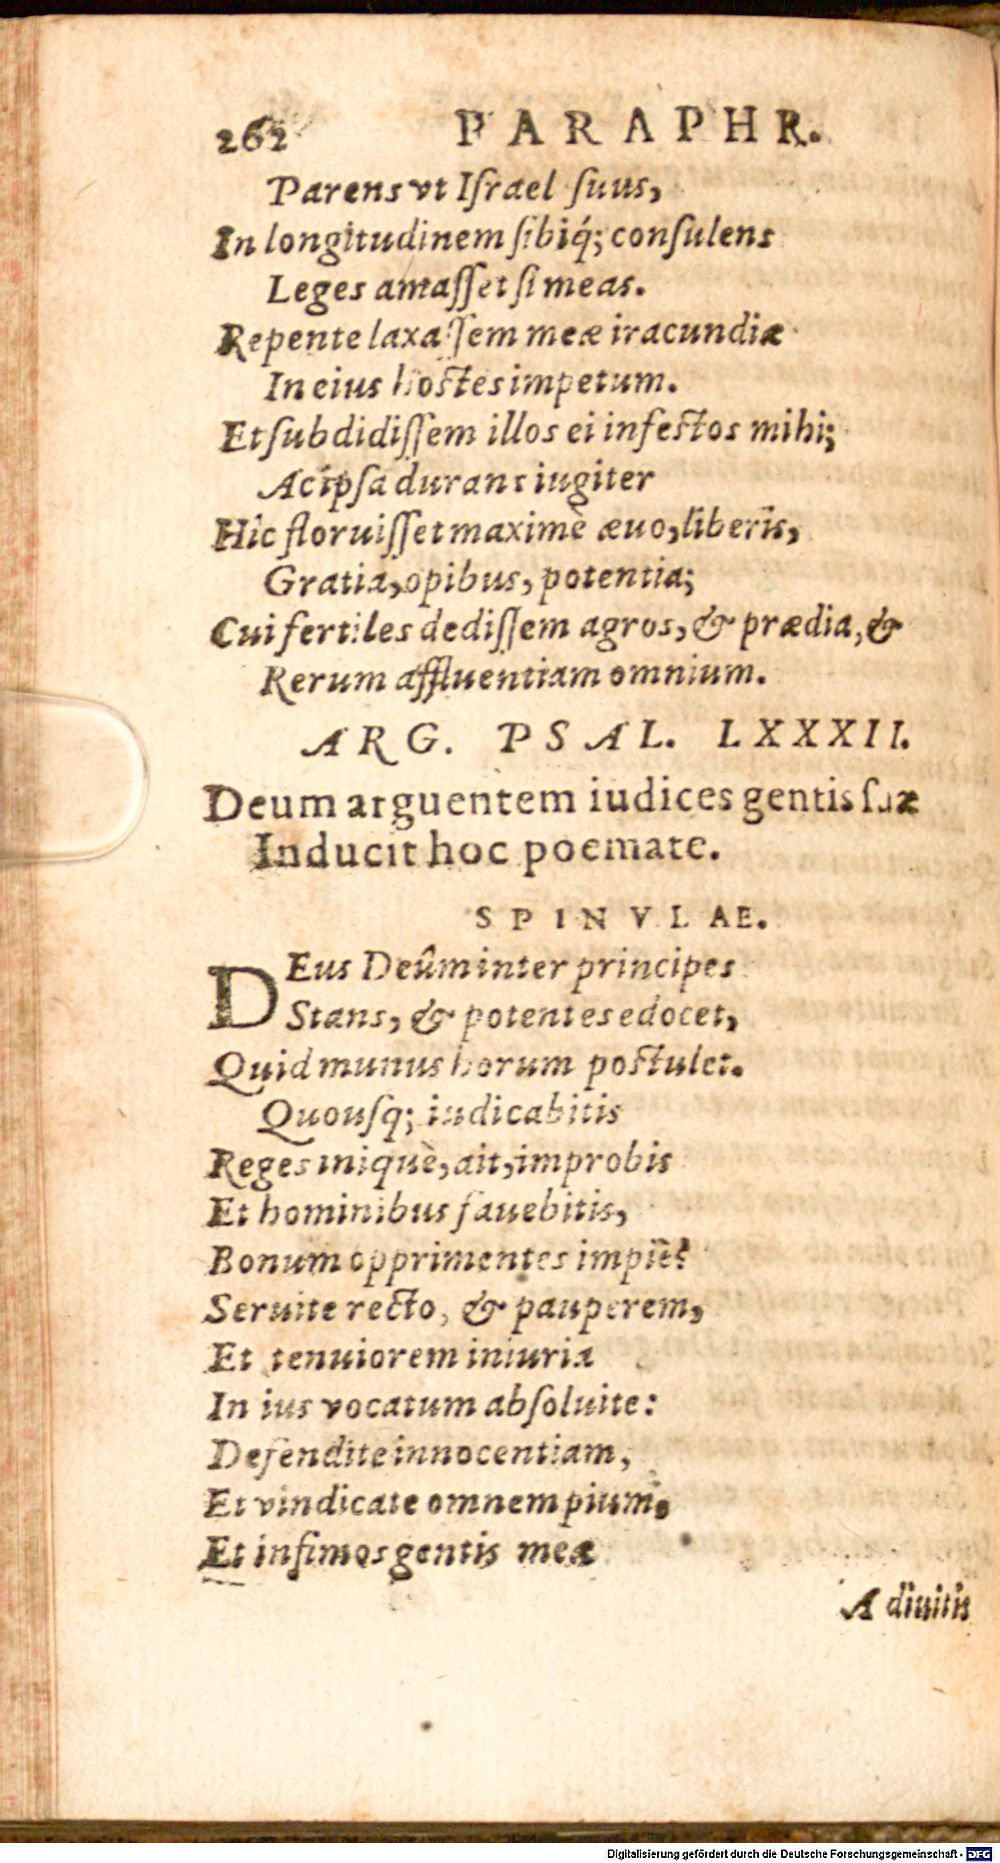 262 PARAPHR.
Parens vt Iſrael ſuus,
In longitudinem ſibiq́; conſulens
Leges amaſſet ſi meas.
Repente laxaſſem meæ iracundiæ
In eius hoſtes impetum.
Et ſubdidiſſem illos ei infeſtos mihi;
Ac ipſa durans iugiter
Hic floruiſſet maximè æuo, liberis,
Gratia, opibus, potentia;
Cui fertiles dediſſem agros, & prædia, &
Rerum affluentiam omnium.
ARG. PSAL. LXXXII.
Deum arguentem iudices gentis ſuæ
Inducit hoc poemate.
SPINVLAE.
DEus Deûm inter principes
Stans, & potentes edocet,
Quid munus horum poſtulet.
Quouſq; iudicabitis
Reges iniquè, ait, improbis
Et hominibus fauebitis,
Bonum opprimentes impiè?
Seruite recto, & pauperem,
Et tenuiorem iniuria
In ius vocatum abſoluite:
Defendite innocentiam,
Et vindicate omnem pium,
Et infimos gentis meæ
A diuitis
Digitalisierung gefördert durch die Deutsche Forschungsgemeinschaft - DFG